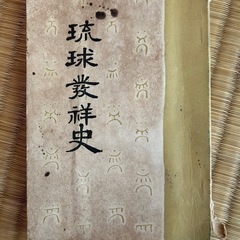 琉球発祥史